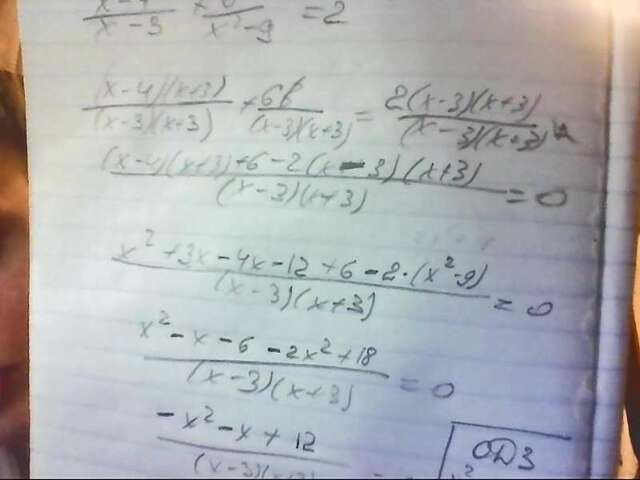 x-4/x-3 + 6/x²-9 = 2
(x-4)(x+3)/(x-3)(x+3) + 6/(x-3)(x+3) = 2(x-3)(x+3)/(x-3)(x+3)
(x-4)(x+3)+6-2(x-3)(x+3)/(x-3)(x+3) = 0
x²+3x-4x-12+6-2·(x²-9)/(x-3)(x+3) = 0
x²-x-6-2x²+18/(x-3)(x+3) = 0
-x²-x+12/(x-3)(x+3)
ОДЗ